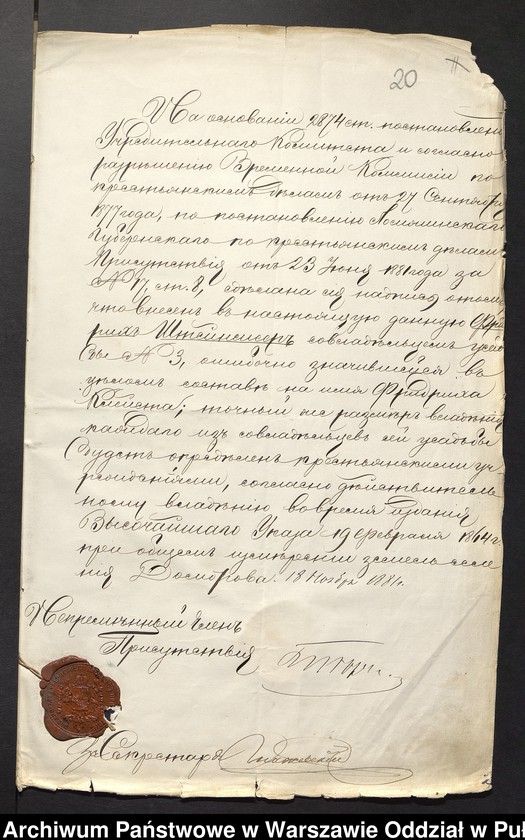 20
На основаніи 2874 ст. постановленія
Учредительнаго Комитета и согласно
разрѣшенію Временной Комиссіи по
крестьянскимъ дѣламъ отъ 27 Сентября
1877 года, по постановленію Ломжинскаго
Губернскаго по крестьянскимъ дѣламъ
Присутствія отъ 23 Іюня 1881 года за
№ 17, ст. 8, сдѣлана сія надпись
что внесенъ въ настоящую данную Фрид
рихъ совладѣльцемъ усадь
бы № 3, ошибочно значившейся въ
цѣломъ составѣ на имя Фридриха
точный же размѣръ владѣнія
каждаго изъ совладѣльцевъ сей усадьбы
будетъ опредѣленъ крестьянскими уч
режденіями, согласно дѣйствитель
ному владѣнію во время изданія
Высочайшаго Указа 19 февраля 1864 г.
при общемъ измѣреніи земель селе
нія 18 Ноября 1881 г.
Непремѣнный Членъ
Присутствія
За Секретаря
Archiwum Państwowe w Warszawie Oddział w Pu